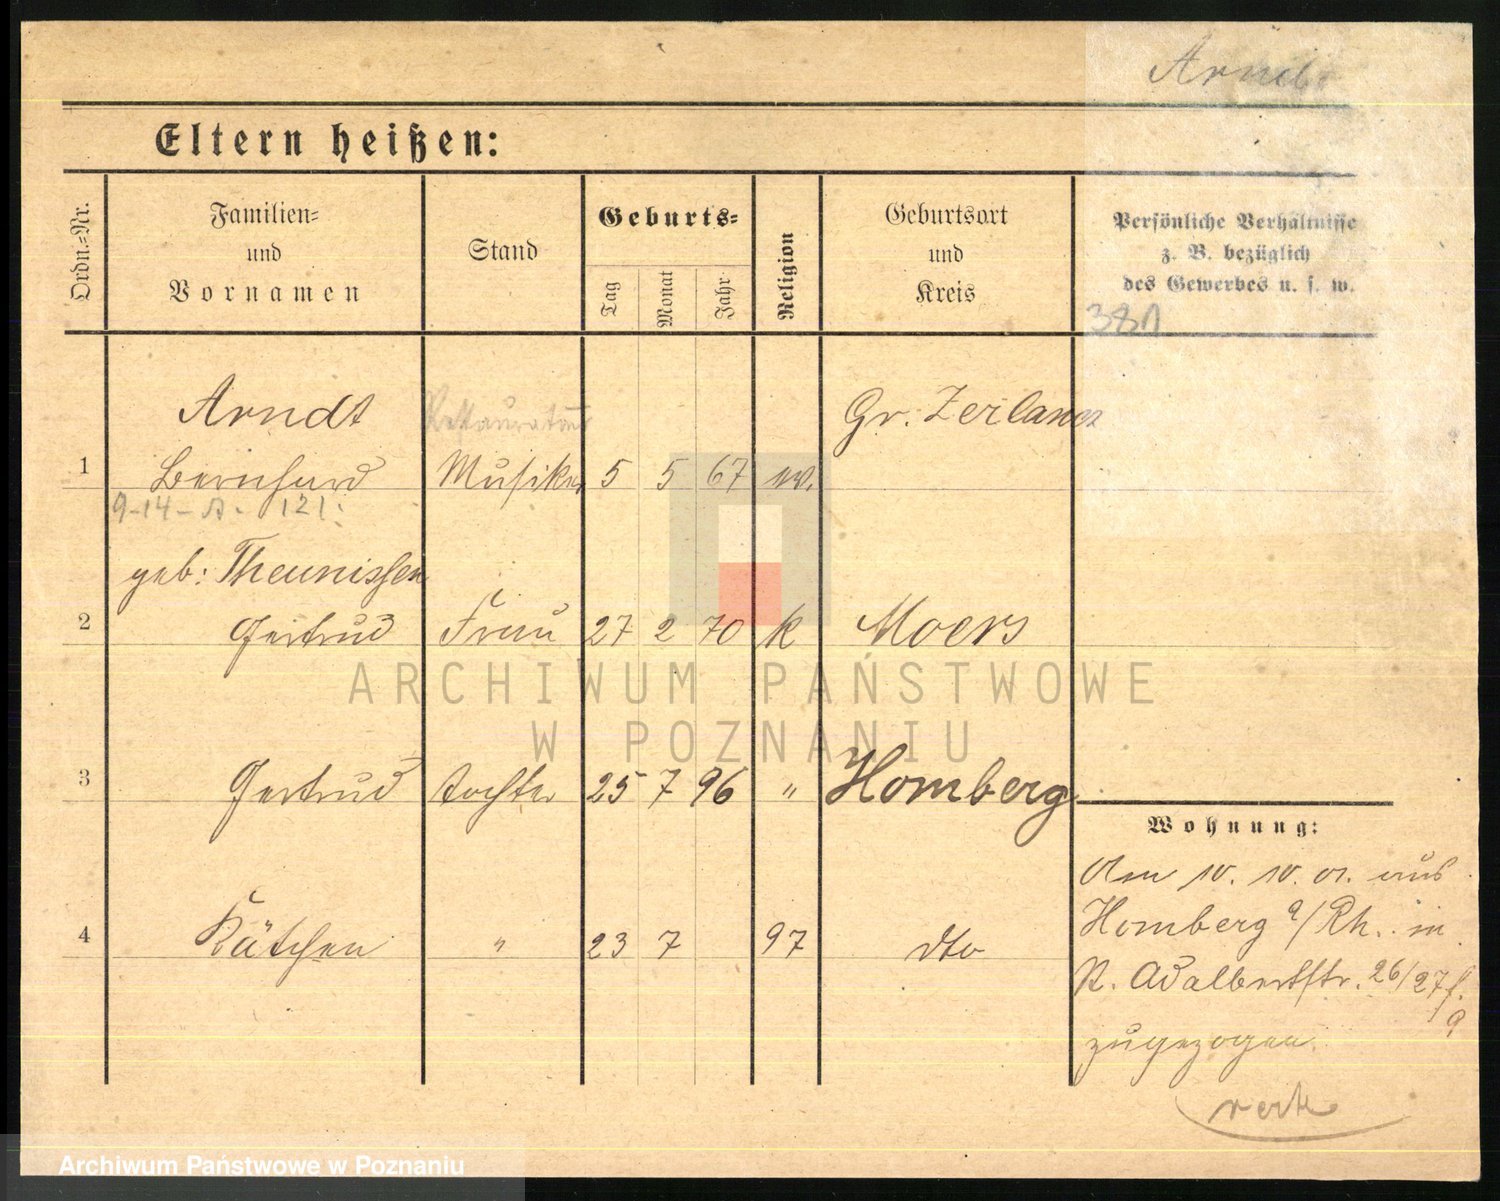 Arndt
Eltern heißen:
Ordn.-Nr.
Familien-
und
Vornamen
Stand
Geburts-
Tag
Monat
Jahr
Religion
Geburtsort
und
Kreis
Persönliche Verhältnisse
z. B. bezüglich
des Gewerbes u. s. w.
381
Arndt Restaurateur Gr. Zerlang
1 Bernhard Musiker 5 5 67 ev.
9-14-A. 121.
geb: Theunissen
2 Gertrud Frau 27 2 70 k Moers
ARCHIWUM PAŃSTWOWE
W POZNANIU
3 Gertrud Tochter 25 7 96 " Homberg
Wohnung:
4 Kätchen " 23 7 97 dto
Am 10. 10. 01. aus
Homberg a/Rh. in
P. Adalbertstr. 26/27
zugezogen.
Archiwum Państwowe w Poznaniu